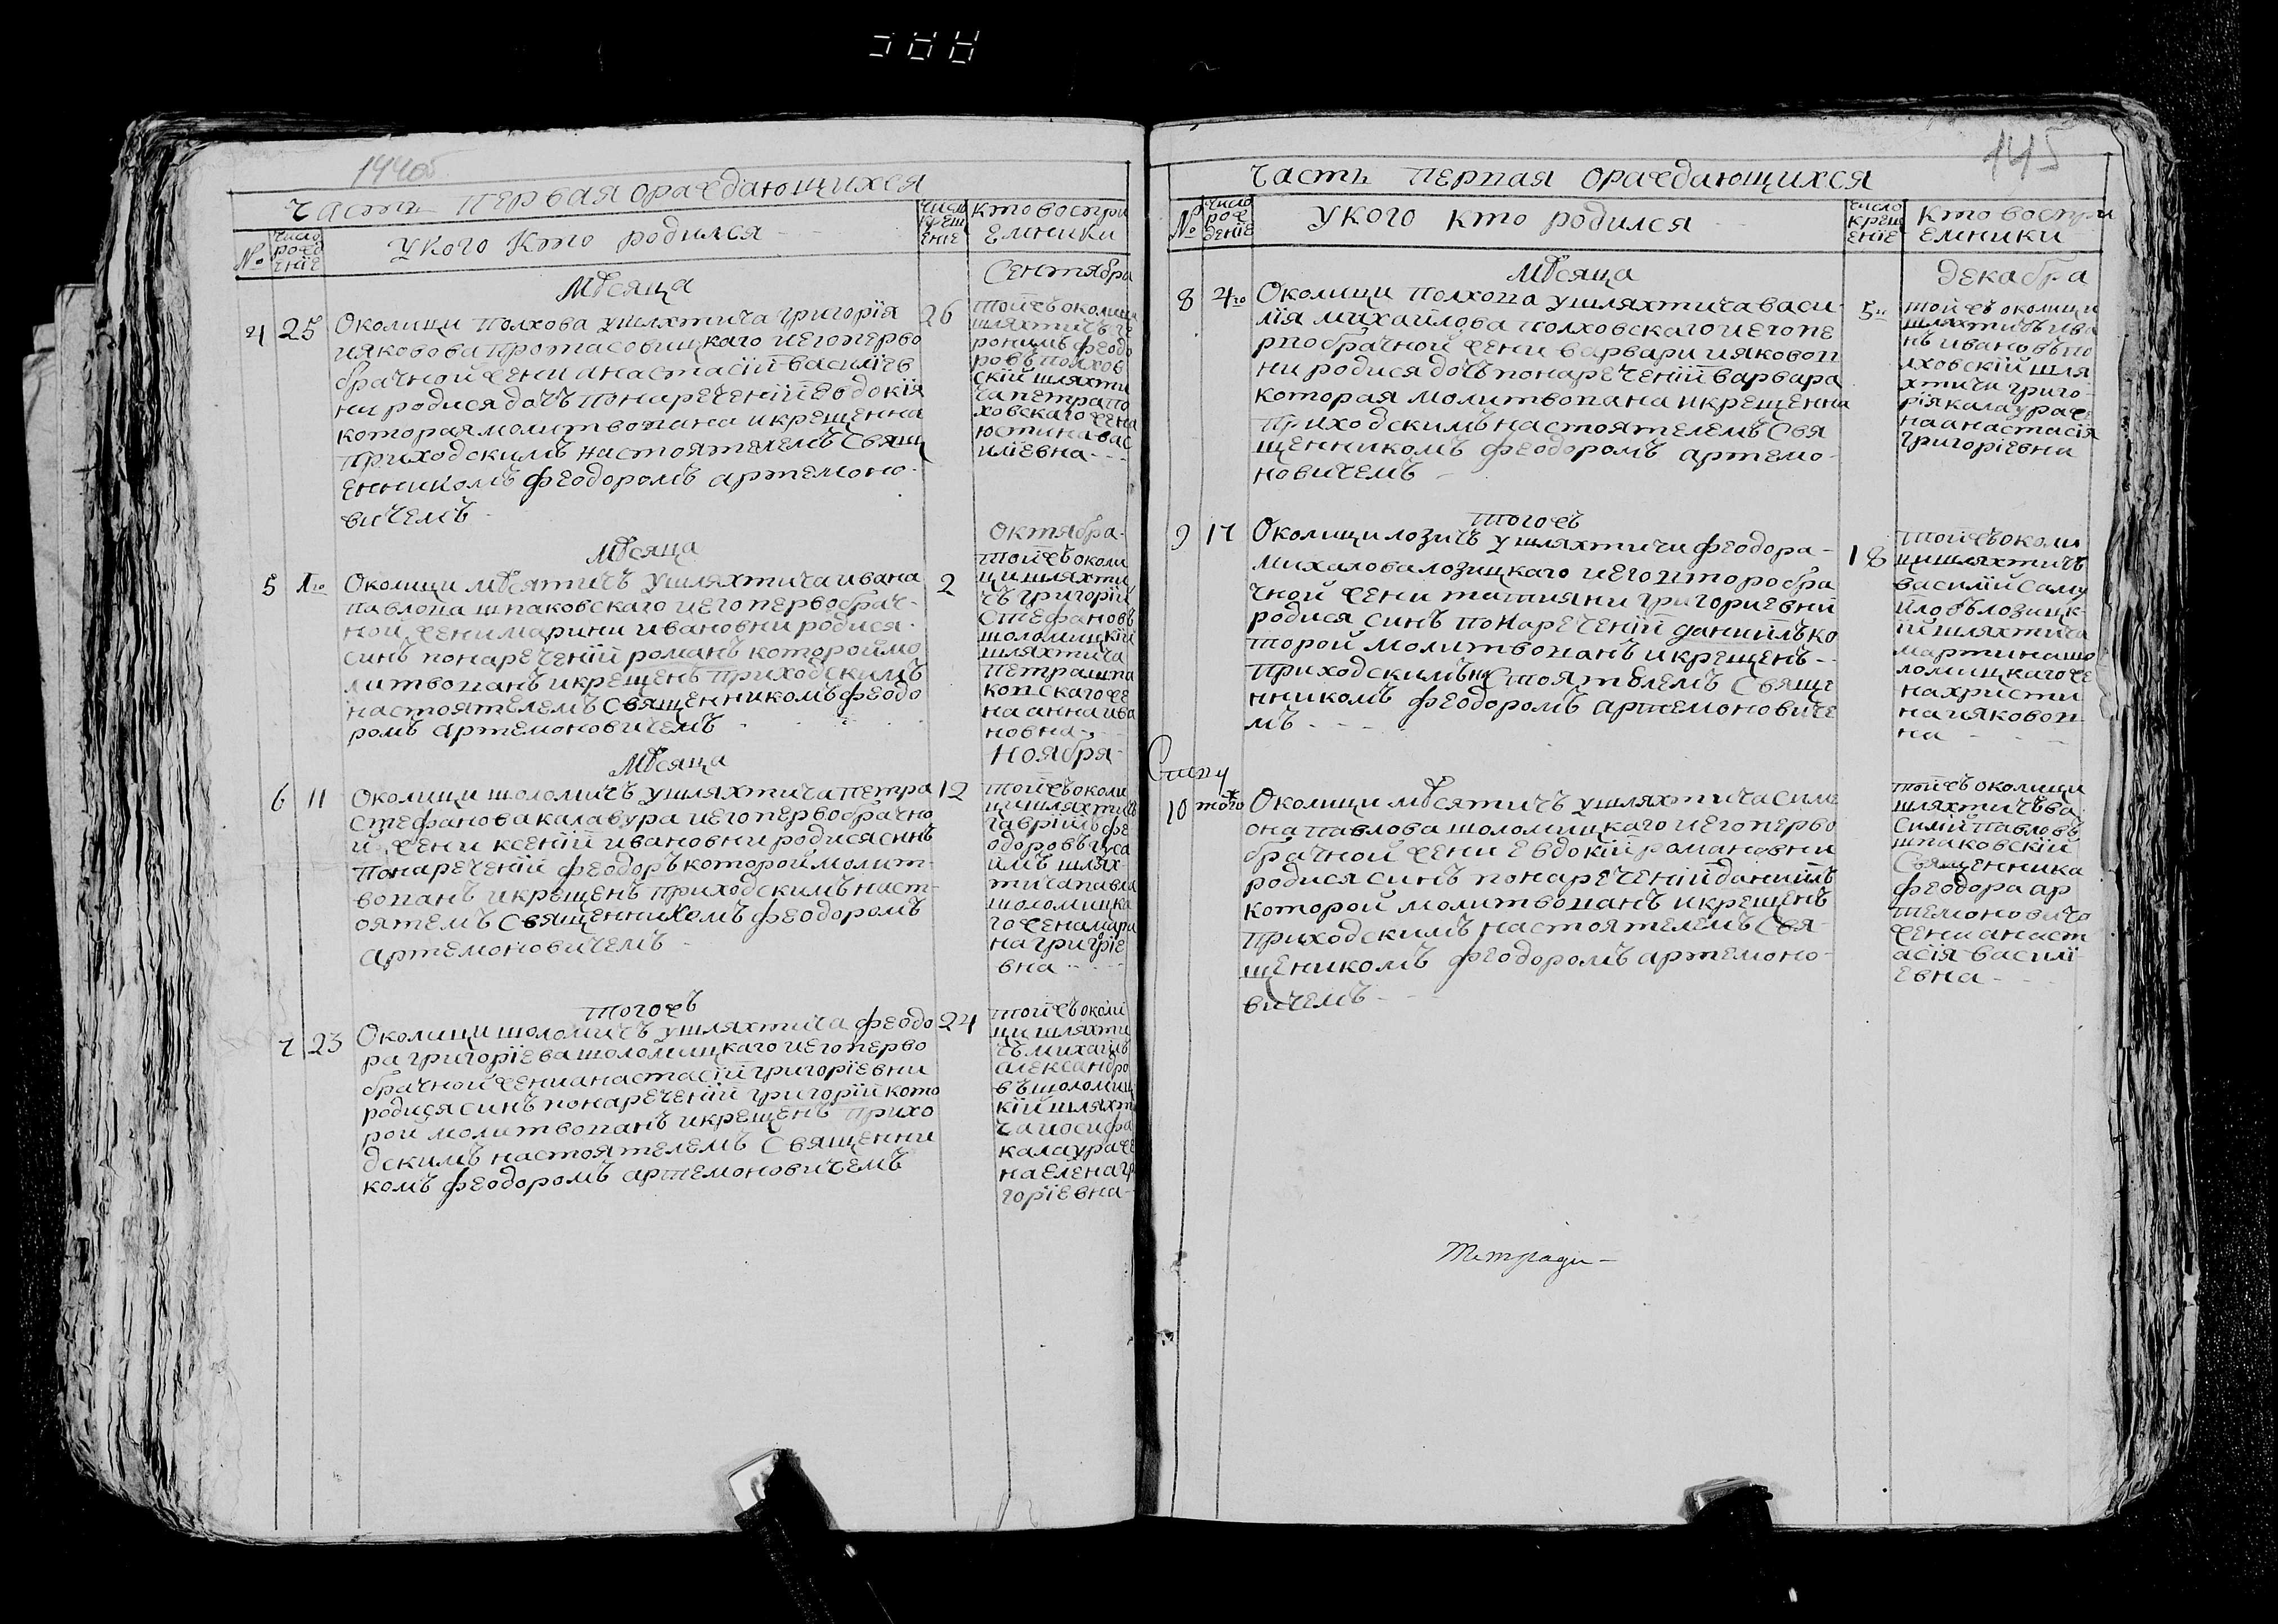 144об
Часть первая ораждающихся
№
число рождение
У кого Кто родился
число крещение
кто воспри
емники
Мѣсяца
Сентября
4
25
Околици Полхова у шляхтича Григорія
Ияковова Протасовицкаго и его перво
брачной жени Анастасіи Василіев
ни родися дочъ по наречении Евдокія
которая молитвована и крещенна
Приходскимъ настоятелемъ Свящ
енникомъ Феодоромъ Артемоно-
вичемъ
26
тойжъ околици
шляхтичъ Ге
ронимъ Феодо
ровъ Полхов
скій шляхти
ча Петра По
ховскаго жена
Юстина Вас
иліевна
Мѣсяца
Октября
5
1го
Околици Мѣсятичъ у шляхтича Ивана
Павлова Шпаковскаго и его первобрач-
ной жени Марини Ивановни родися
синъ по наречении Романъ которой мо
литвованъ и крещенъ Приходскимъ
настоятелемъ Священникомъ Феодо
ромъ Артемоновичемъ
2
тойжъ околи
ци шляхти
чъ Григорій
Стефановъ
Шоломицкій
шляхтича
Петра Шпа
ковскаго же
на Анна Ива
новна
Мѣсяца
Ноября
6
11
Околици Шоломичъ у шляхтича Петра
Стефанова Калавура и его первобрачно
й жени Ксеніи Ивановни родися синъ
По наречении Феодоръ которой молит-
вованъ и крещенъ Приходскимъ наст-
оятемъ Священникомъ Феодоромъ
Артемоновичемъ
12
тойжъ околи
ци шляхтичъ
Гавріилъ Фе
одоровъ
шлях-
тича Павла
Шоломицка
го жена Мара
на Григоріе
вна
тогожъ
7
23
Околици Шоломичъ у шляхтича Феодо
ра Григоріева Шоломицкаго и его перво
брачной жени Анастасіи Григоріевни
родися синъ по наречении Григорій кото
рой молитвованъ и крещенъ Прихо
дскимъ настоятелемъ Священни
комъ Феодоромъ Артемоновичемъ
24
тойжъ околи
ци шляхти
чъ Михаилъ
Александро
въ Шоломиц
кій шляхти
ча Иосифа
Калаура же
на Елена Гри
горіевна
145
Часть первая ораждающихся
№
число рождение
У кого кто родился
число крещение
кто воспри
емники
Мѣсяца
Декабра
8
4го
Околици Полхова у шляхтича Васи-
лія Михайлова Полховскаго и его пе
рвобрачной жени Варвари Ияковов
ни родися дочъ по наречении Варвара
которая молитвована и крещенна
Приходскимъ настоятелемъ Свя
щенникомъ Феодоромъ Артемо-
новичемъ
5
тойжъ околици
шляхтичъ Ива
нъ Ивановъ По
лховскій шля
хтича Григо-
рія Калаура же
на Анастасія
Григоріевна
тогожъ
9
17
Околици Лозичъ у шляхтичи Феодора
Михалова Лозицкаго и его второбра
чной жени Татияни Григориевни
родися синъ по наречении Даниилъ ко
торой молитвованъ и крещенъ
Приходскимъ настоятелемъ Священ
никомъ Феодоромъ Артемоновиче
мъ
18
тойжъ околи
ци шляхтичъ
Василій Саму
йловъ Лозицк-
ій шляхтича
Мартина Шо
ломицкаго же
на Христи
на Ияковов
на
10
того
Околици Мѣсятичъ у шляхтича Симе
она Павлова Шоломицкаго и его перво
брачной жени Евдокіи Романовни
родися синъ по наречении Даниилъ
которой молитвованъ и крещенъ
Приходскимъ настоятелемъ Свя-
щеникомъ Феодоромъ Артемоно-
вичемъ
тойжъ околици
шляхтичъ Ва
силій Павловъ
Шпаковскій
Священника
Феодора Ар
темоновича
жени Анаст
асія Василі
евна
Тетради